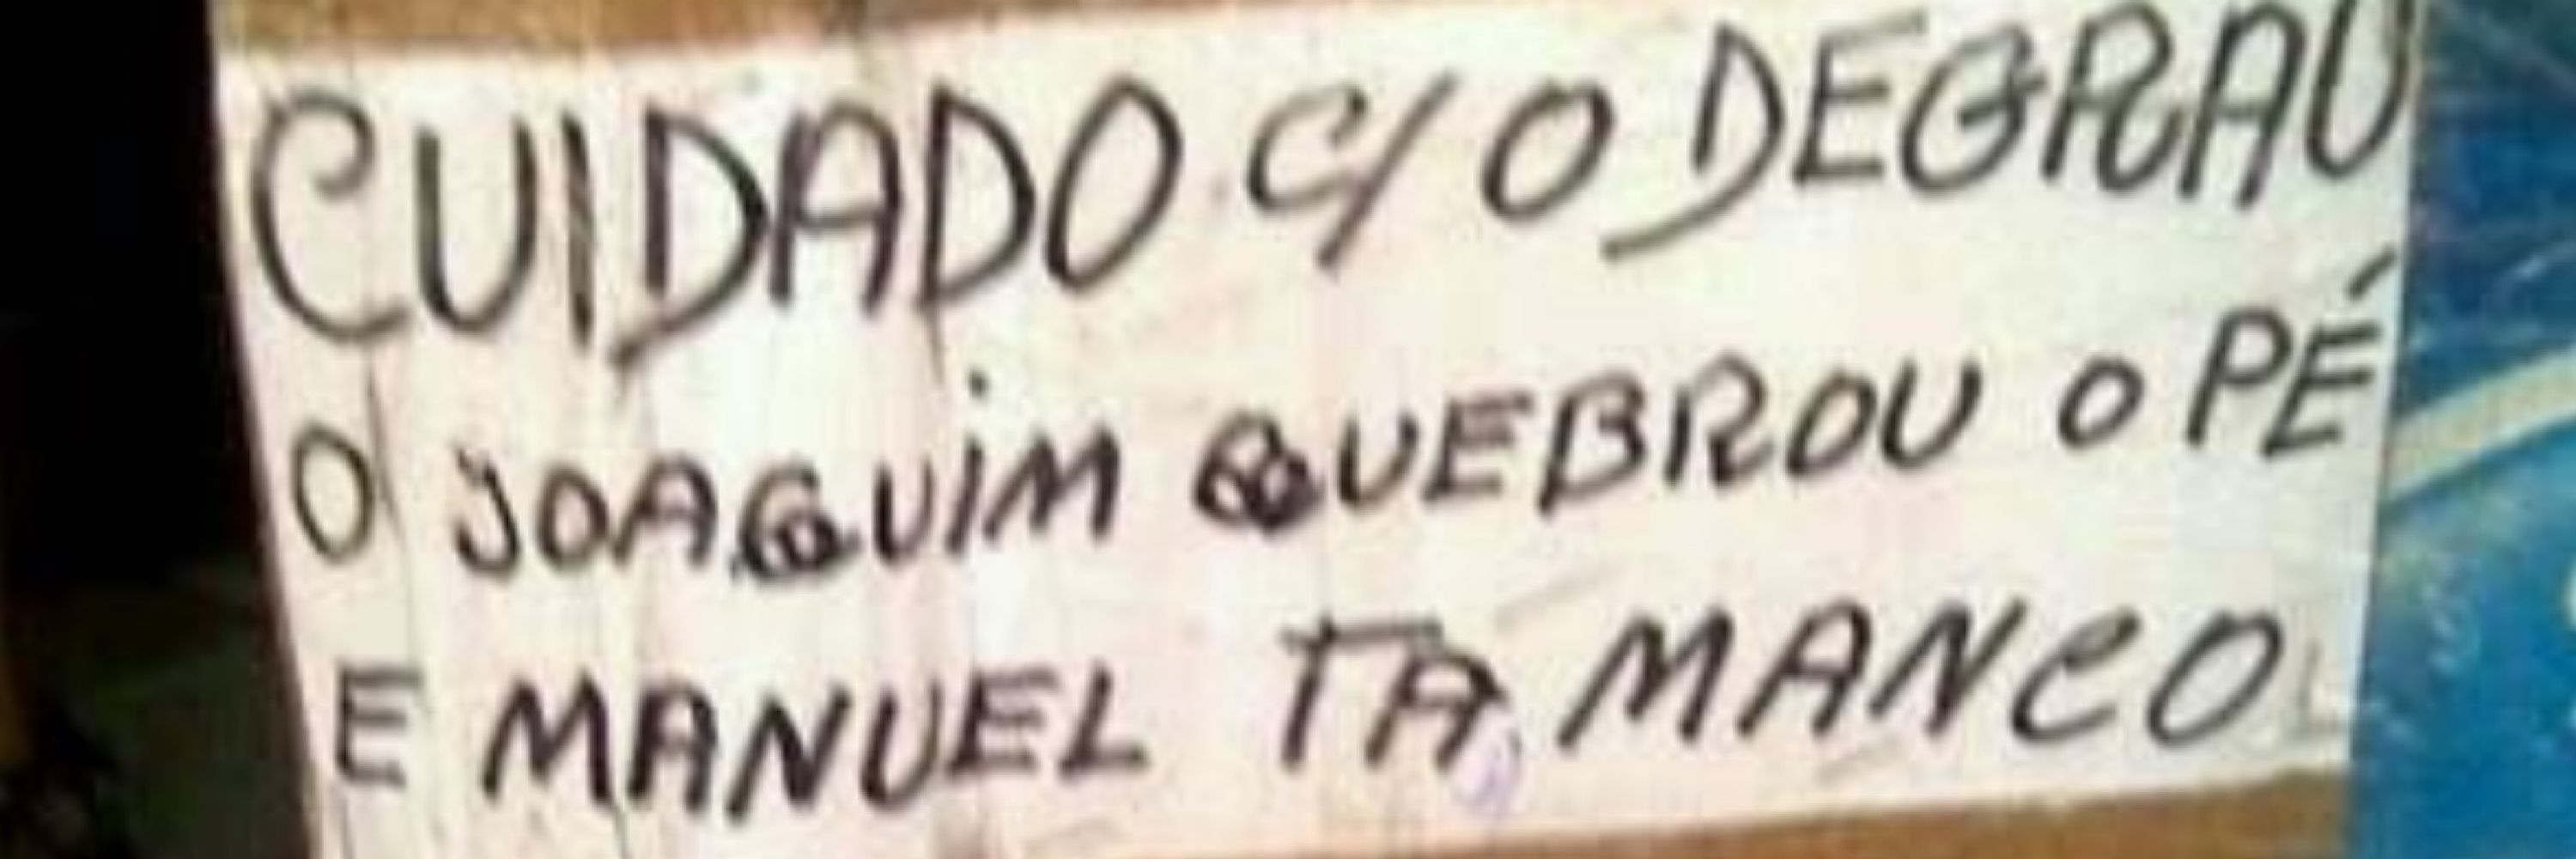 CUIDADO C/ O DEGRAU
O JOAQUIM QUEBROU O PÉ
E MANUEL TA MANCO